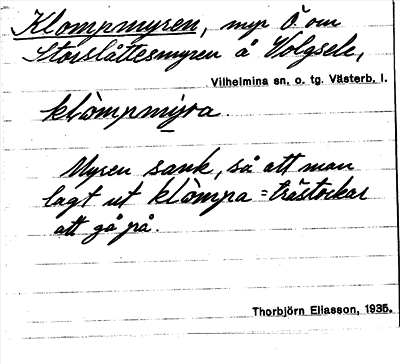 Klompmyren, myr Ö. om
Storslåttesmyren å Volgsele,
Vilhelmina sn. o. tg. Västerb. l.
klòmpmy̲ra.
Myren sank, så att man
lagt ut klòmpa = trästockar
att gå på.
Thorbjörn Eliasson, 1935.